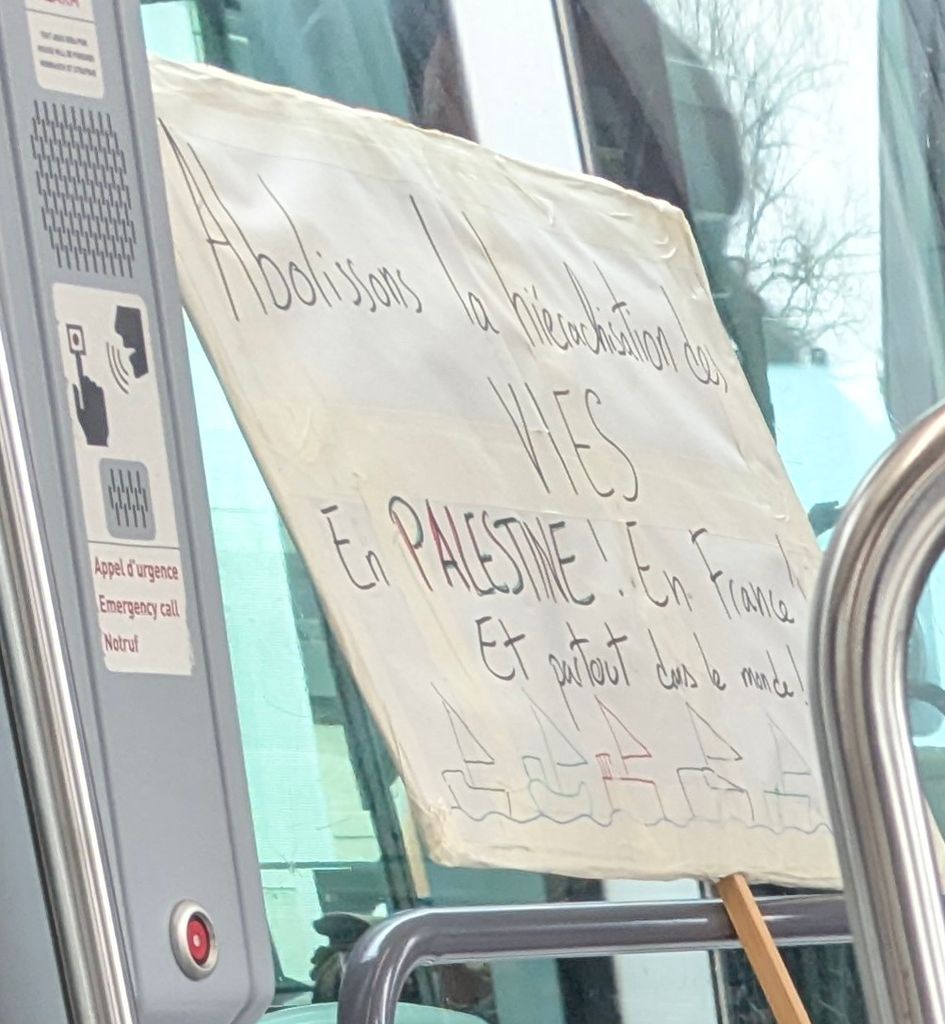 Abolissons la hiérachisation des
VIES
En PALESTINE ! En France !
Et partout dans le monde !
Appel d'urgence
Emergency call
Notruf